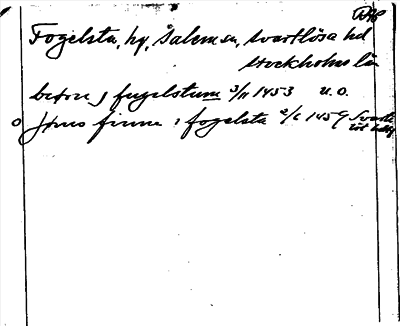 Fogelsta, hg, Salem sn, Svartlösa hd
Stockholms län
i fugelstum 3/11 1453 u.o.
Jöns finne i fogelsta 2/6 1459 Svartlöt